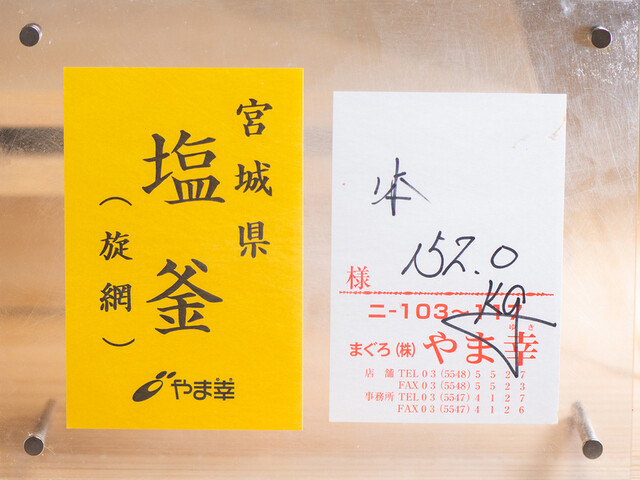 宮城県
塩釜
（旋網）
やま幸
152.0
KG
様
ニ-103～117
ゆき
まぐろ（株）やま幸
店舗 TEL 03（5548）5527
FAX 03（5548）5523
事務所 TEL 03（5547）4127
FAX 03（5547）4126